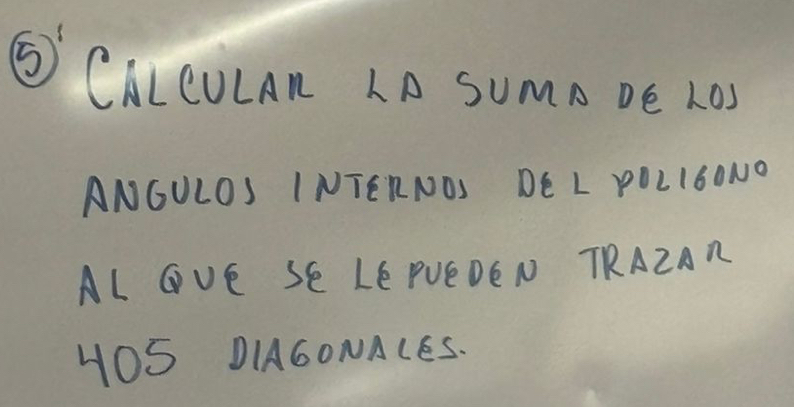 ⑤ CALCULAR LA SUMA DE LOS
ANGULOS INTERNOS DEL POLIGONO
AL QUE SE LE PUEDEN TRAZAR
405 DIAGONALES.